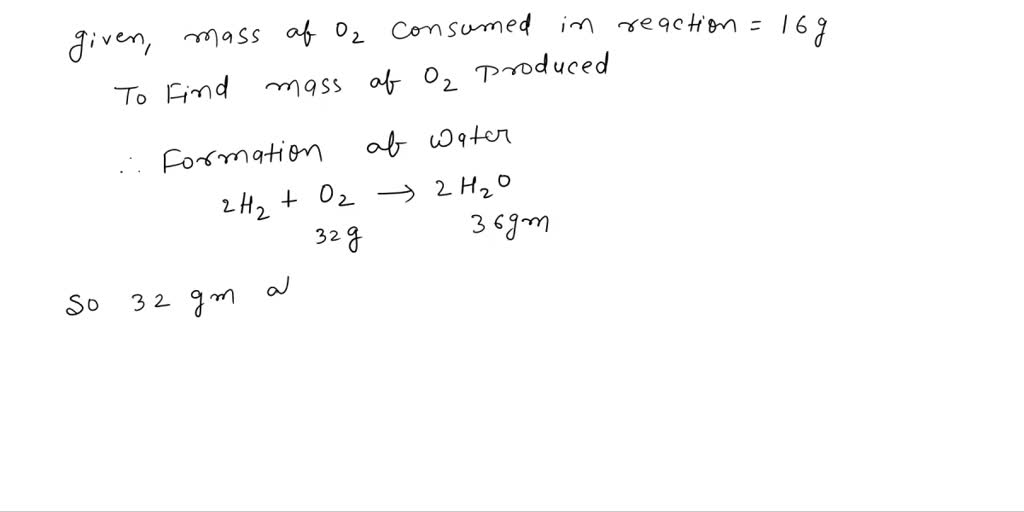 given, mass of O2 consumed in reaction = 16g
To Find mass of O2 produced
∴ Formation of water
2H2 + O2 → 2H2O
32g 36gm
So 32 gm